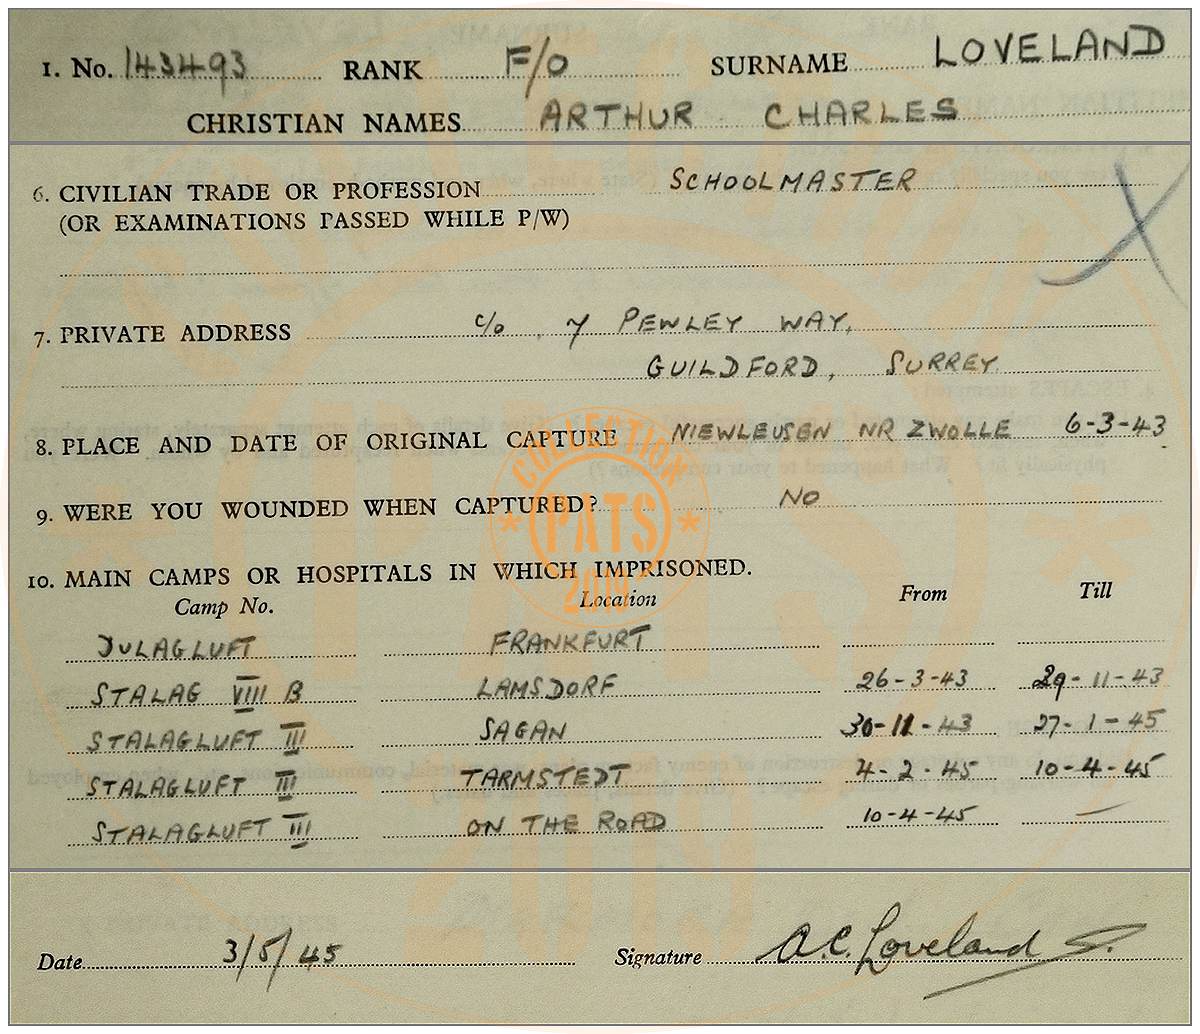 1. No. 143493 RANK F/O SURNAME LOVELAND
CHRISTIAN NAMES ARTHUR CHARLES
6. CIVILIAN TRADE OR PROFESSION SCHOOLMASTER
(OR EXAMINATIONS PASSED WHILE P/W)
7. PRIVATE ADDRESS c/o, 7 PEWLEY WAY,
GUILDFORD, SURREY.
8. PLACE AND DATE OF ORIGINAL CAPTURE NIEWLEUSEN NR ZWOLLE 6-3-43
9. WERE YOU WOUNDED WHEN CAPTURED? NO
10. MAIN CAMPS OR HOSPITALS IN WHICH IMPRISONED.
Camp No. Location From Till
DULAGLUFT FRANKFURT
STALAG VIII B LAMSDORF 26-3-43 29-11-43
STALAGLUFT III SAGAN 30-11-43 27-1-45
STALAGLUFT III TARMSTEDT 4-2-45 10-4-45
STALAGLUFT III ON THE ROAD 10-4-45 —
Date 3/5/45 Signature A.C. Loveland
COLLECTION
PATS
2019